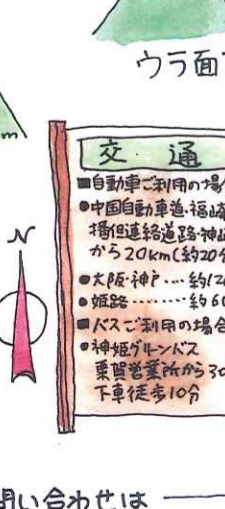 ウラ面
m
交通
■自動車ご利用の場合
●中国自動車道・福崎
播但連絡道路・神崎
から20km(約20分
●大阪・神戸‥‥約12
●姫路‥‥‥‥約60
■バスご利用の場合
●神姫グリーンバス
粟賀営業所から30
下車徒歩10分
N
問い合わせは